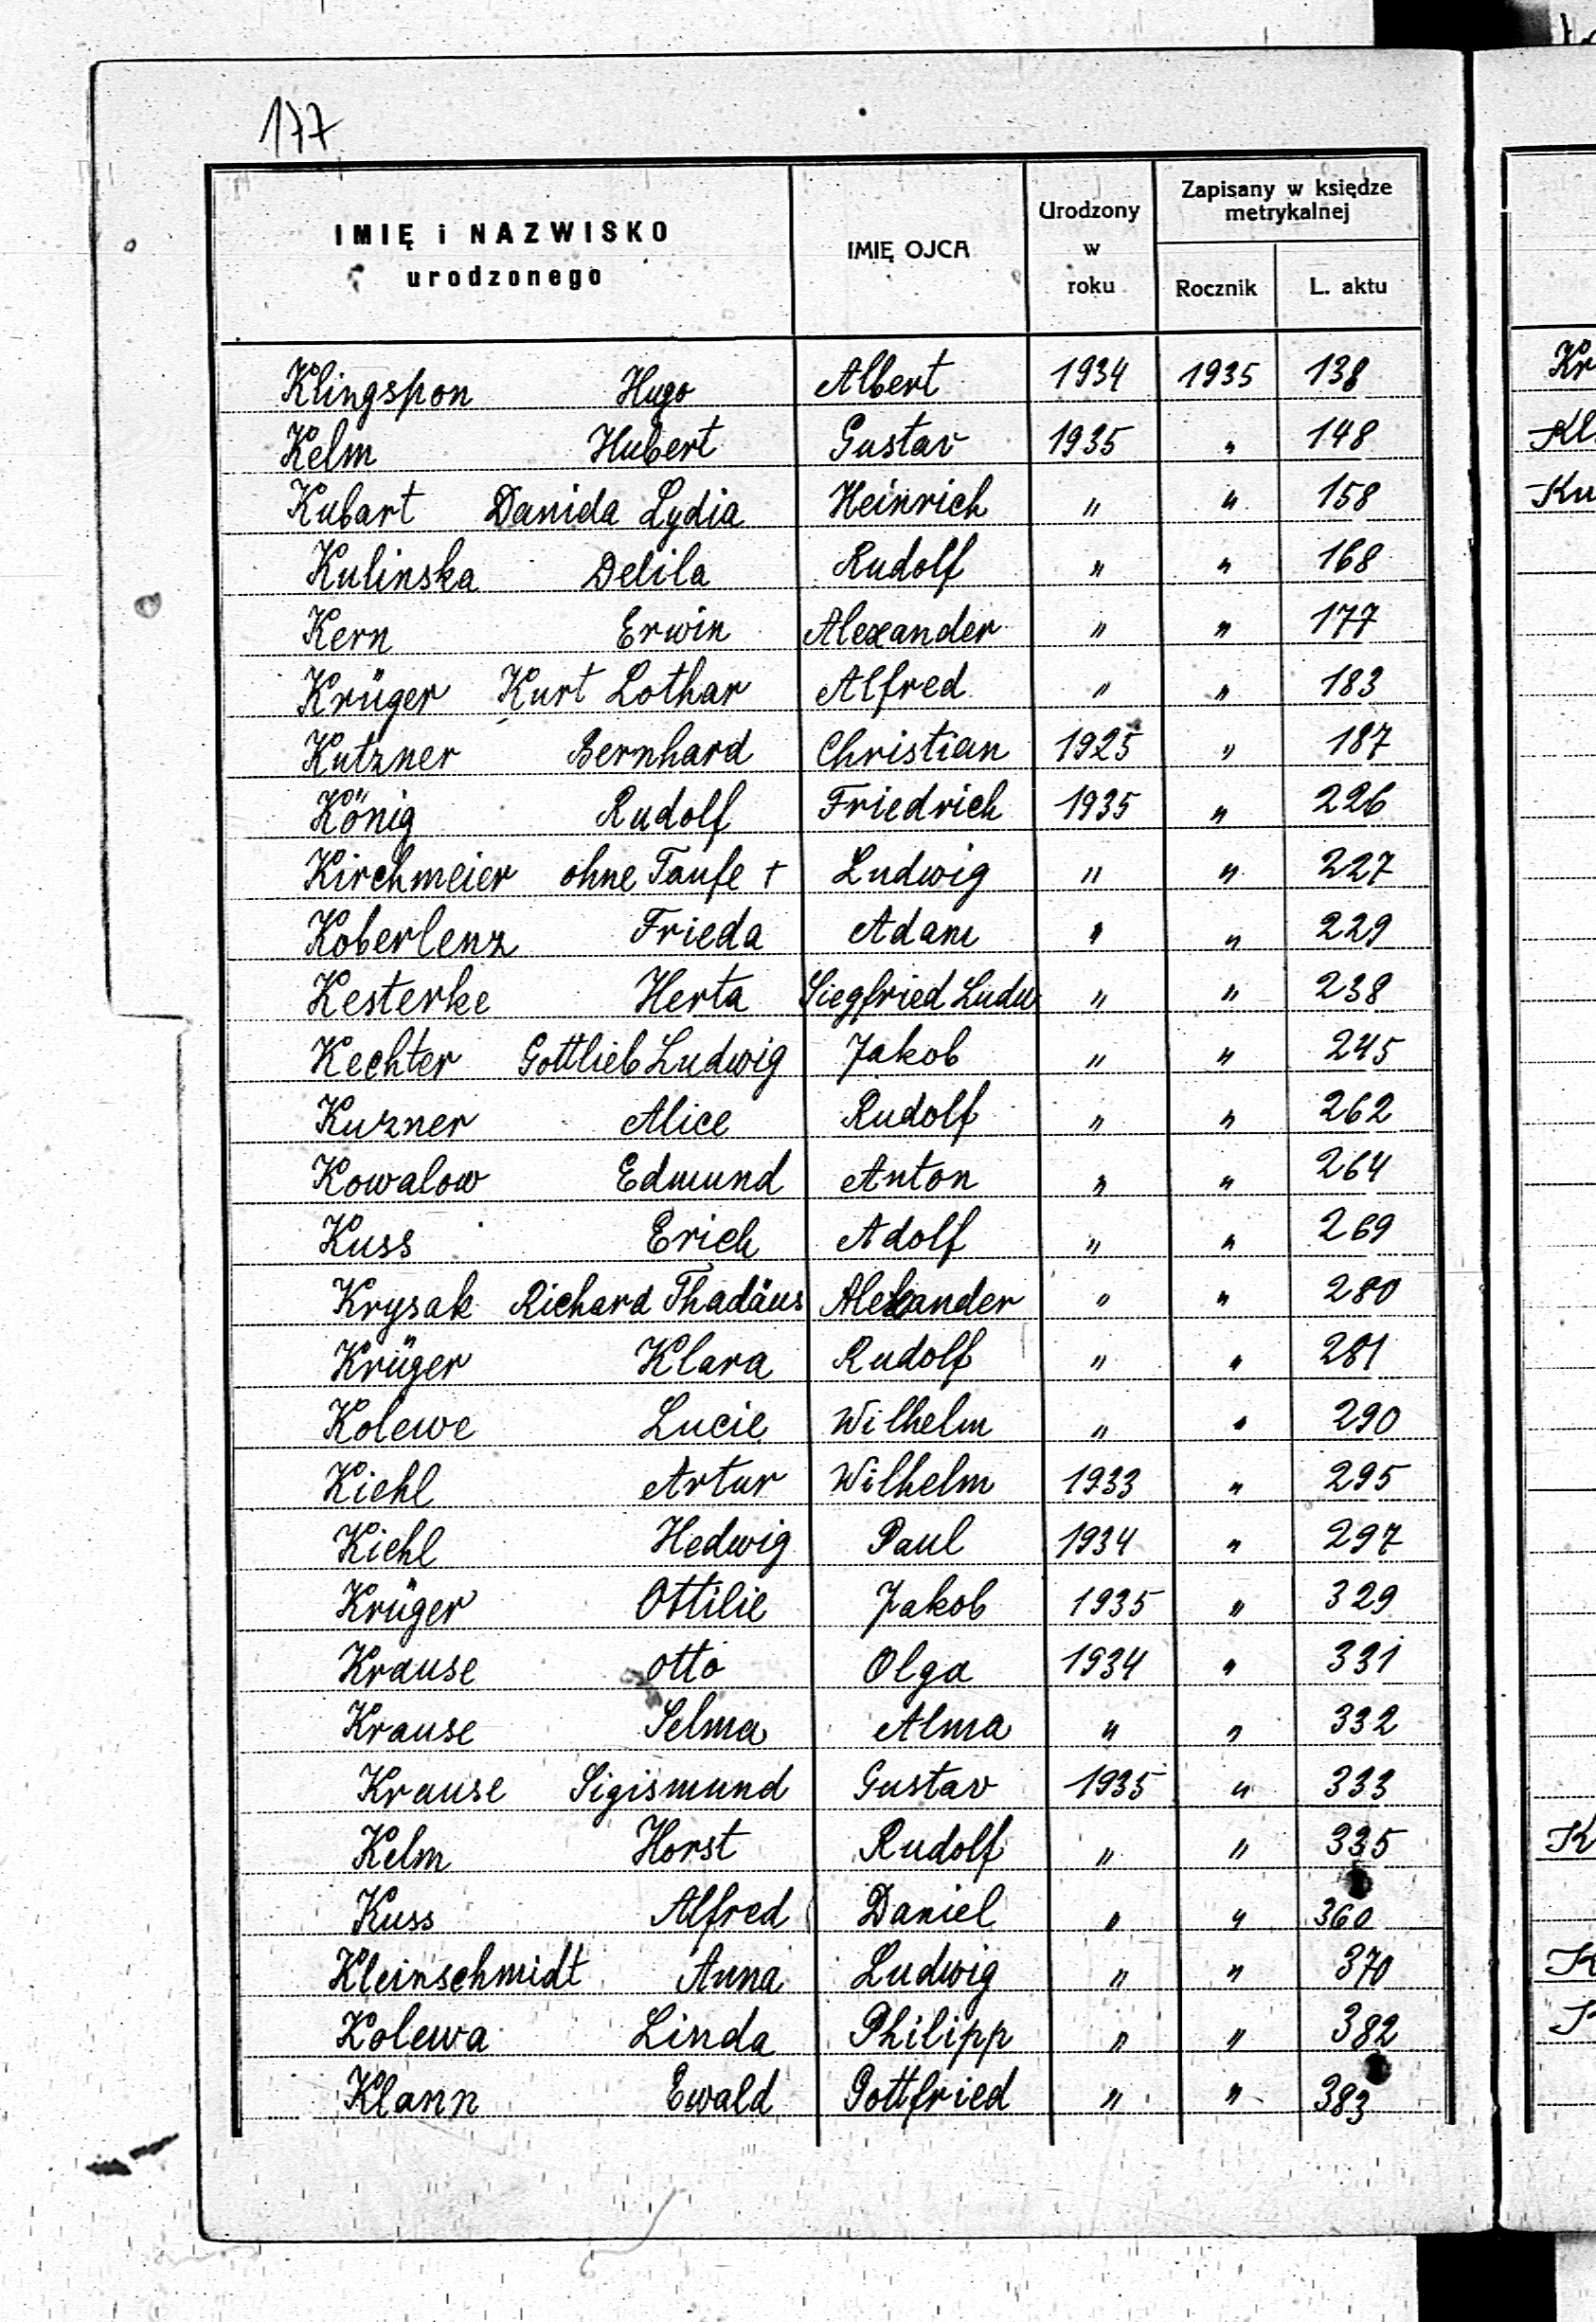 177
IMIĘ i NAZWISKO
urodzonego
IMIĘ OJCA
Urodzony
w
roku
Zapisany w księdze
metrykalnej
Rocznik
L. aktu
Klingspon Hugo Albert 1934 1935 138
Kelm Hubert Gustav 1935 " 148
Kubart Danida Lydia Heinrich " " 158
Kulinska Delila Rudolf " " 168
Kern Erwin Alexander " " 177
Krüger Kurt Lothar Alfred " " 183
Kutzner Bernhard Christian 1925 " 187
König Rudolf Friedrich 1935 " 226
Kirchmeier ohne Taufe † Ludwig " " 227
Koberlenz Frieda Adam " " 229
Kesterke Herta Siegfried Ludw " " 238
Kechter Gottlieb Ludwig Jakob " " 245
Kuzner Alice Rudolf " " 262
Kowalow Edmund Anton " " 264
Kuss Erich Adolf " " 269
Krysak Richard Thadäus Alexander " " 280
Krüger Klara Rudolf " " 281
Kolewe Lucie Wilhelm " " 290
Kiehl Artur Wilhelm 1933 " 295
Kiehl Hedwig Paul 1934 " 297
Krüger Ottilie Jakob 1935 " 329
Krause Otto Olga 1934 " 331
Krause Selma Alma " " 332
Krause Sigismund Gustav 1935 " 333
Kelm Horst Rudolf " " 335
Kuss Alfred Daniel " " 360
Kleinschmidt Anna Ludwig " " 370
Kolewa Linda Philipp " " 382
Klann Ewald Gottfried " " 383
Kr
Kl
Ku
K
K
K